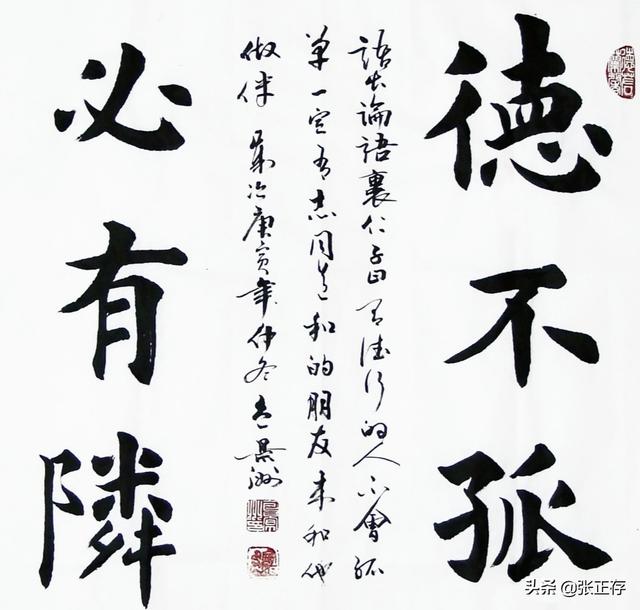 德不孤
必有隣
語出論語裏仁意即有德行的人不會孤
單一定有志同道和的朋友來和他
做伴 歲次庚寅年仲冬
头条 @张正存